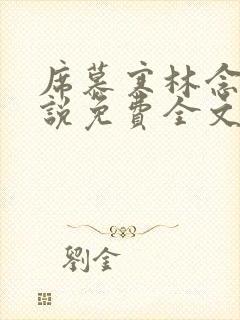 席慕寒林念
説免費全文
劉金